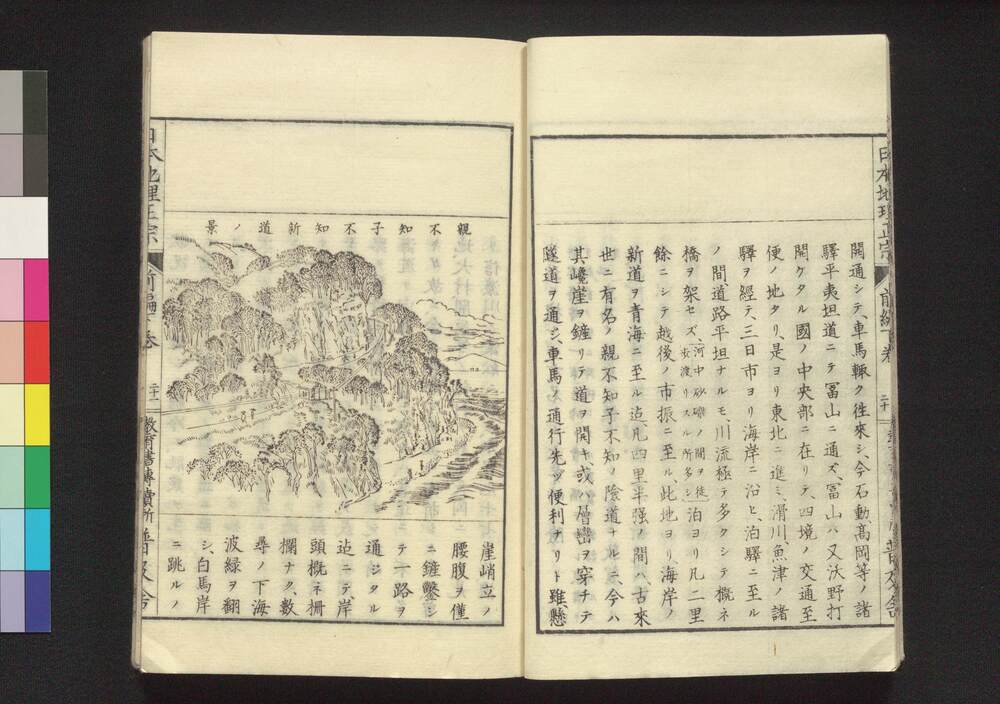 日本地理正宗
前編
二十
普及舎
開通シテ、車馬輙ク往來シ、今石動、高岡等ノ諸
驛平夷坦道ニテ冨山ニ通ズ、冨山ハ又沃野打
開ケタル國ノ中央部ニ在リテ、四境ノ交通至
便ノ地タリ、是ヨリ東北ニ進ミ、滑川、魚津ノ諸
驛ヲ經テ、三日市ヨリ海岸ニ沿ヒ、泊驛ニ至ル
ノ間道路平坦ナルモ、川流極テ多クシテ概ネ
橋ヲ架セズ、河中砂礫ノ間ヲ徒歩渡リスル所多シ泊ヨリ凡二里
餘ニシテ越後ノ市振ニ至ル、此地ヨリ海岸ノ
新道ヲ青海ニ至ル迠、凡四里半强ノ間ハ、古來
世ニ有名ノ親不知子不知ノ險道ナルニ、今ハ
其巉崖ヲ鏟リテ道ヲ開キ、或ハ層巒ヲ穿チテ
隧道ヲ通シ、車馬ノ通行先ヅ便利ナリト雖、懸
親不知子不知新道ノ景
崖峭立ノ
腰腹ヲ僅
ニ鏟鑿シ
テ一路ヲ
通ジタル
迠ニテ、岸
頭概ネ柵
欄ナク、數
尋ノ下海
波緑ヲ翻
シ、白馬岸
ニ跳ルノ
日本地理正宗
前編
卷
二十一
教育書專賣所
普及舎